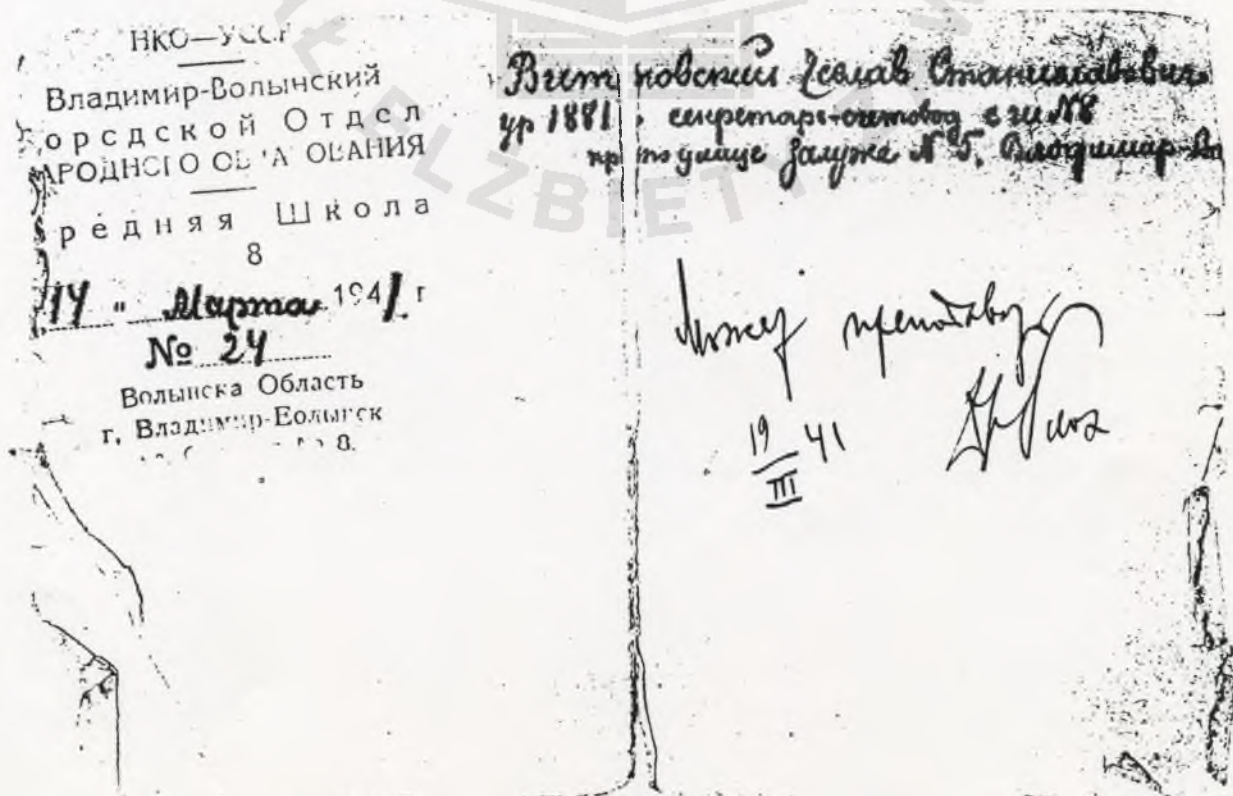 НКО—УССР
Владимир-Волынский
Городской Отдел
НАРОДНОГО ОБРАЗОВАНИЯ
Средняя Школа
8
"14" Марта 1941 г
№ 24
Волынска Область
г. Владимир-Волынск
8.
Чеслав Станиславович
ур 1881 секретарь-счетовод с ш №8
по улице Залуже № 5. Владимир-Во
Может
19/III 41
ELZBIETY